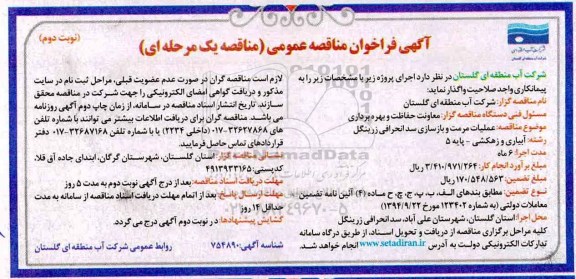 (نوبت دوم)
آگهی فراخوان مناقصه عمومی (مناقصه یک مرحله ای)
شرکت آب منطقه ای گلستان در نظر دارد اجرای پروژه زیر با مشخصات زیر را به
پیمانکاری واجد صلاحیت واگذار نماید:
نام مناقصه گزار: شرکت آب منطقه ای گلستان
مسئول فنی دستگاه مناقصه گزار: معاونت حفاظت و بهره برداری
موضوع مناقصه: عملیات مرمت و بازسازی سد انحرافی زرینگل
رشته: آبیاری و زهکشی - پایه 5
مدت اجرا: 6 ماه
مبلغ برآورد انجام کار: 3/410/971/264 ریال
مبلغ تضمین: 170/548/563 ریال
نوع تضمین: مطابق بندهای الف، ب، پ، ج، چ، ح ماده (4) آئین نامه تضمین
معاملات دولتی (به شماره 123402 مورخ 1394/9/22)
محل اجرا: استان گلستان، شهرستان علی آباد، سد انحرافی زرینگل
کلیه مراحل برگزاری مناقصه از دریافت و تحویل اسناد، از طریق درگاه سامانه
تدارکات الکترونیکی دولت به آدرس www.setadiran.ir انجام خواهد شد.
لازم است مناقصه گران در صورت عدم عضویت قبلی، مراحل ثبت نام در سایت
مذکور و دریافت گواهی امضای الکترونیکی را جهت شرکت در مناقصه محقق
سازند. تاریخ انتشار اسناد مناقصه در سامانه، از زمان چاپ دوم آگهی روزنامه
می باشد. مناقصه گران برای دریافت اطلاعات بیشتر می توانند با شماره تلفن
های 32627868-017 (داخلی 2234) یا با شماره تلفن 32687168-017 دفتر
قراردادهای تماس حاصل فرمایید.
نشانی مناقصه گزار: استان گلستان، شهرستان گرگان، ابتدای جاده آق قلا،
کدپستی: 4913933165
مهلت دریافت اسناد مناقصه: بعد از درج آگهی نوبت دوم به مدت 5 روز
مهلت ارسال پاسخ: بعد از اتمام مهلت دریافت اسناد مناقصه از سامانه به مدت
حداقل 14 روز
گشایش پیشنهادها: در نوبت دوم آگهی درج می گردد.
شناسه آگهی: 754890
روابط عمومی شرکت آب منطقه ای گلستان